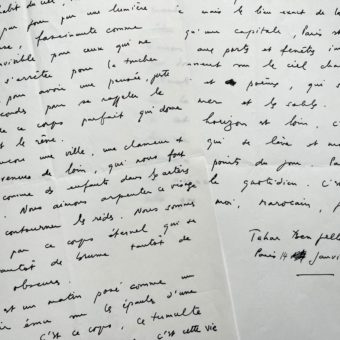 par une lumière
fascinante comme
pour ceux qui ne
s'arrêter pour la toucher
pour avoir une pensée, juste
pour se rappeler le
ce corps parfait qui donne
et le rêve.
une ville, une clameur et
venues de loin, qui nous font
comme des enfants dans les artères
Nous aimons arpenter ce visage
contourner les rides. Nous sommes
par ce corps éternel qui se
tantôt de brume tantôt de
obscure.
est un matin posé comme un
ému sur les épaules d'une
C'est ce corps, ce tumulte
c'est cette vie
mais le lieu secret de
qu'une capitale, Paris
aux ports et fenêtres
sur le ciel
et poèmes, qui
mer et les sables.
horizon et loin, c'
qui se lève et
points du jour. Pa
le quotidien. C'es
moi, marocain,
Tahar Ben Jell
Paris 14 Janvi